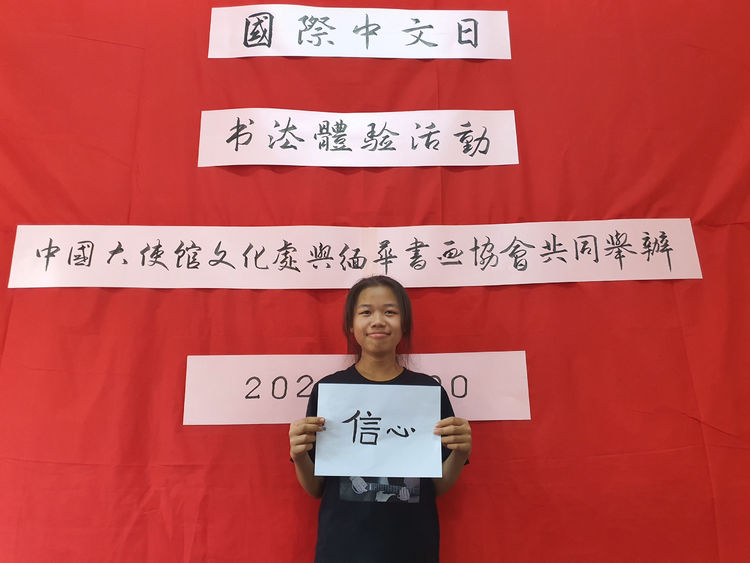 國際中文日
书法體验活動
中國大使馆文化處與缅華書画協會共同舉辦
202 20
信心